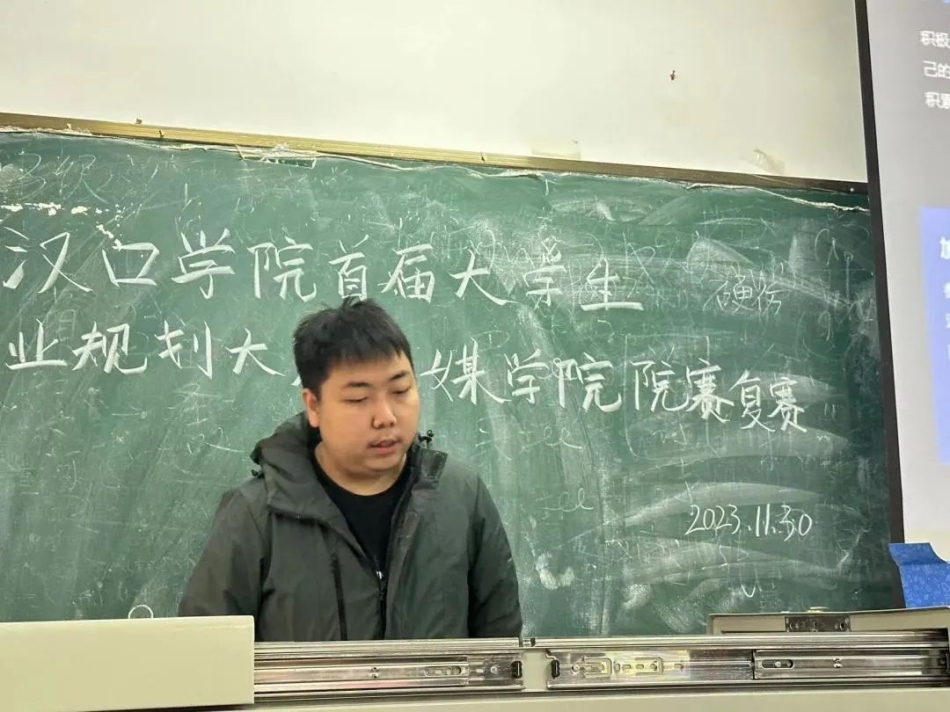 汉口学院首届大学生
业规划大 媒学院院赛复赛
2023.11.30
积极
己的
积累